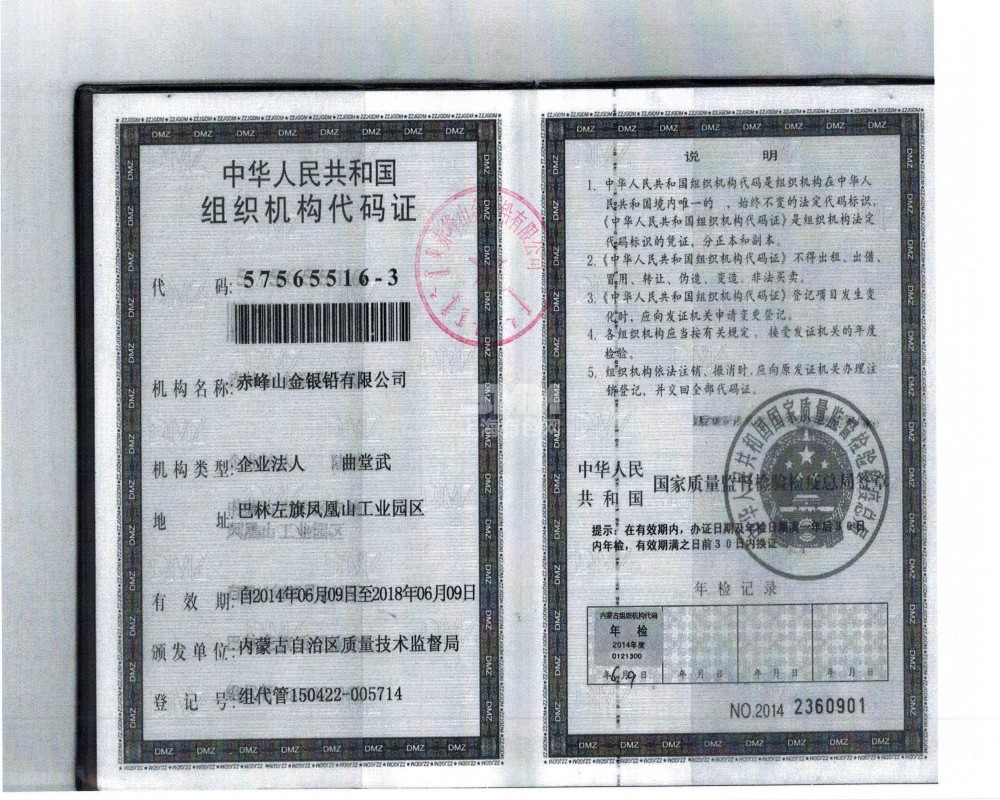 中华人民共和国
组织机构代码证
代 码: 57565516-3
机构名称: 赤峰山金银铅有限公司
机构类型: 企业法人 曲堂武
地 址: 巴林左旗凤凰山工业园区
有 效 期: 自2014年06月09日至2018年06月09日
颁发单位: 内蒙古自治区质量技术监督局
登 记 号: 组代管150422-005714
说 明
1. 中华人民共和国组织机构代码是组织机构在中华人
民共和国境内唯一的 、始终不变的法定代码标识,
《中华人民共和国组织机构代码证》是组织机构法定
代码标识的凭证,分正本和副本。
2.《中华人民共和国组织机构代码证》不得出租、出借、
冒用、转让、伪造、变造、非法买卖。
3.《中华人民共和国组织机构代码证》登记项目发生变
化时,应向发证机关申请变更登记。
4. 各组织机构应当按有关规定,接受发证机关的年度
检验。
5. 组织机构依法注销、撤消时,应向原发证机关办理注
销登记,并交回全部代码证。
中华人民
共和国 国家质量监督检验检疫总局签章
提示:在有效期内,办证日期及年检日期满一年后30日
内年检,有效期满之日前30日内换证
年检记录
内蒙古组织机构代码
年 检
2014年度
0121300
年6月9日 年 月 日 年 月 日 年 月 日
NO.2014 2360901